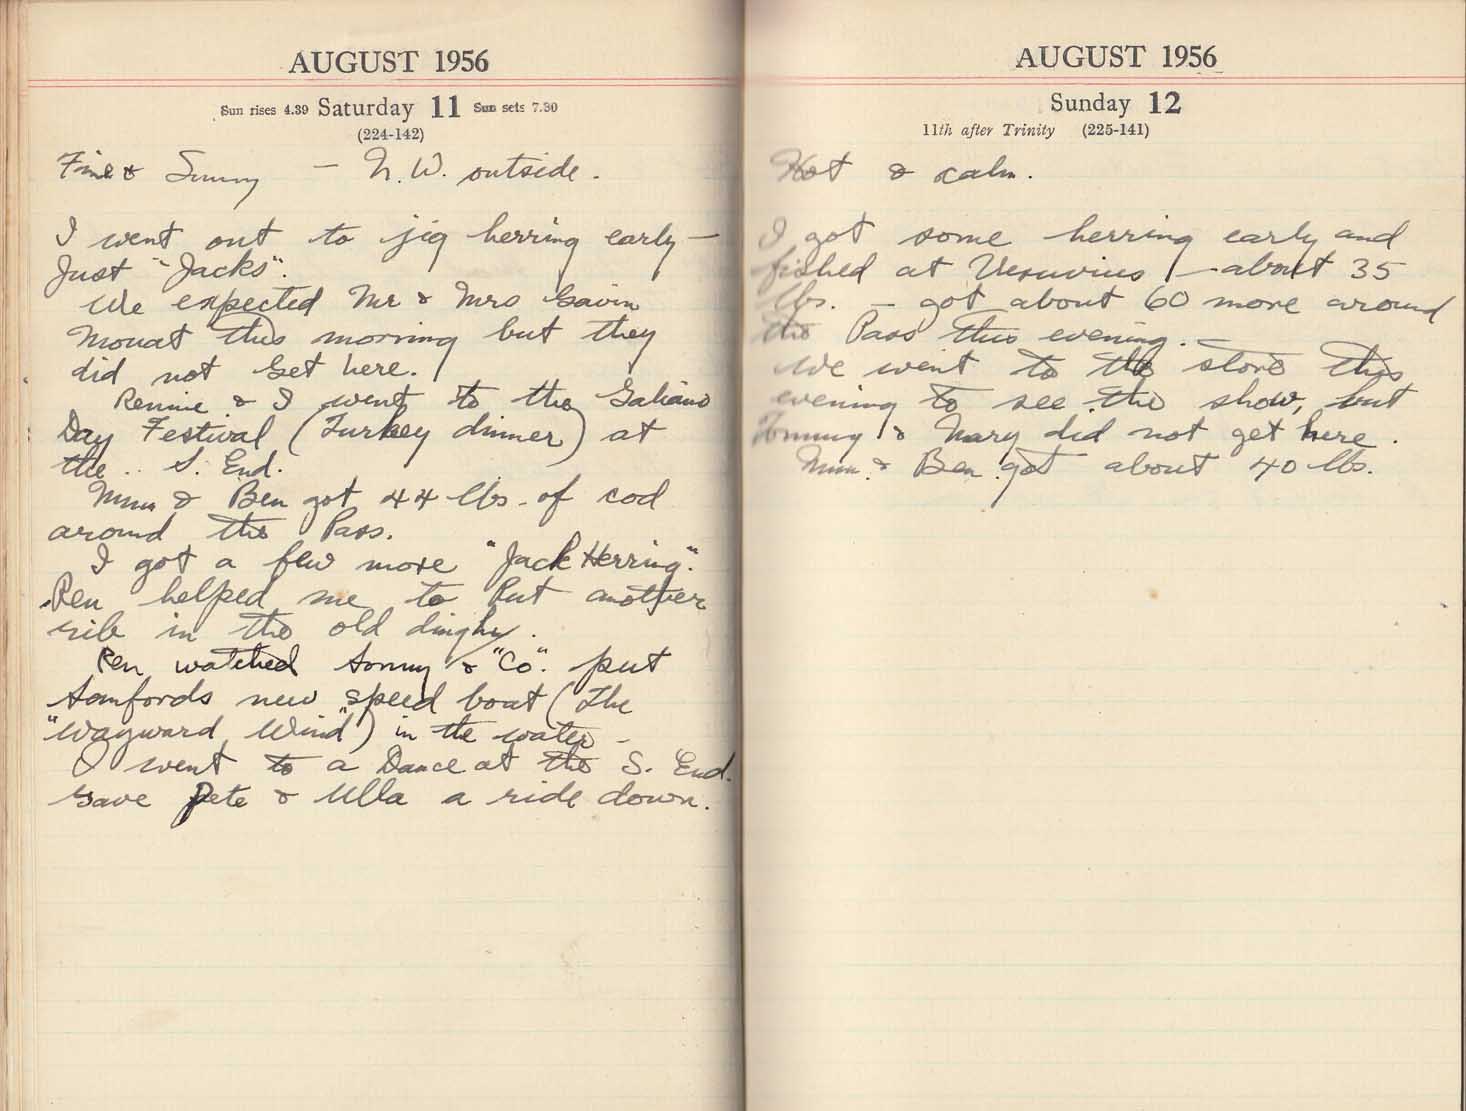 AUGUST 1956
Sun rises 4.39 Saturday 11 Sun sets 7.30
(224-142)
Fine & Sunny — N.W. outside.
I went out to jig herring early —
Just "Jacks".
We expected Mr & Mrs Gavin
Mouat this morning but they
did not Get here.
Rennie & I went to the Galiano
Day Festival (Turkey dinner) at
the S. End.
Mum & Ben got 44 lbs. of cod
around the Pass.
I got a few more "Jack Herring".
Ren helped me to Put another
rib in the old dinghy.
Ren watched Tommy & "Co". put
Samfords new speed boat (The
"Wayward Wind") in the water —
I went to a Dance at the S. End.
Gave Pete & Ulla a ride down.
AUGUST 1956
Sunday 12
11th after Trinity (225-141)
Hot & calm.
I got some herring early and
fished at Vesuvius — about 35
lbs. — got about 60 more around
the Pass this evening.
We went to the store this
evening to see the show, but
Tommy & Mary did not get here.
Mum & Ben got about 40 lbs.